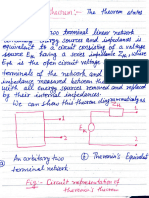 Theorem:- The theorem states
two terminal linear network
energy sources and impedances is
equivalent to a circuit consisting of a voltage
source having a series impedance
is the open circuit voltage
terminals of the network and
impedance measured between the
with all energy sources removed and replaced
by their internal impedances.
We can show this theorem diagrammatically as
1
2
An arbitrary two
terminal network
Thevenin's Equivalent
Fig:- Circuit representation of
thevenin's theorem